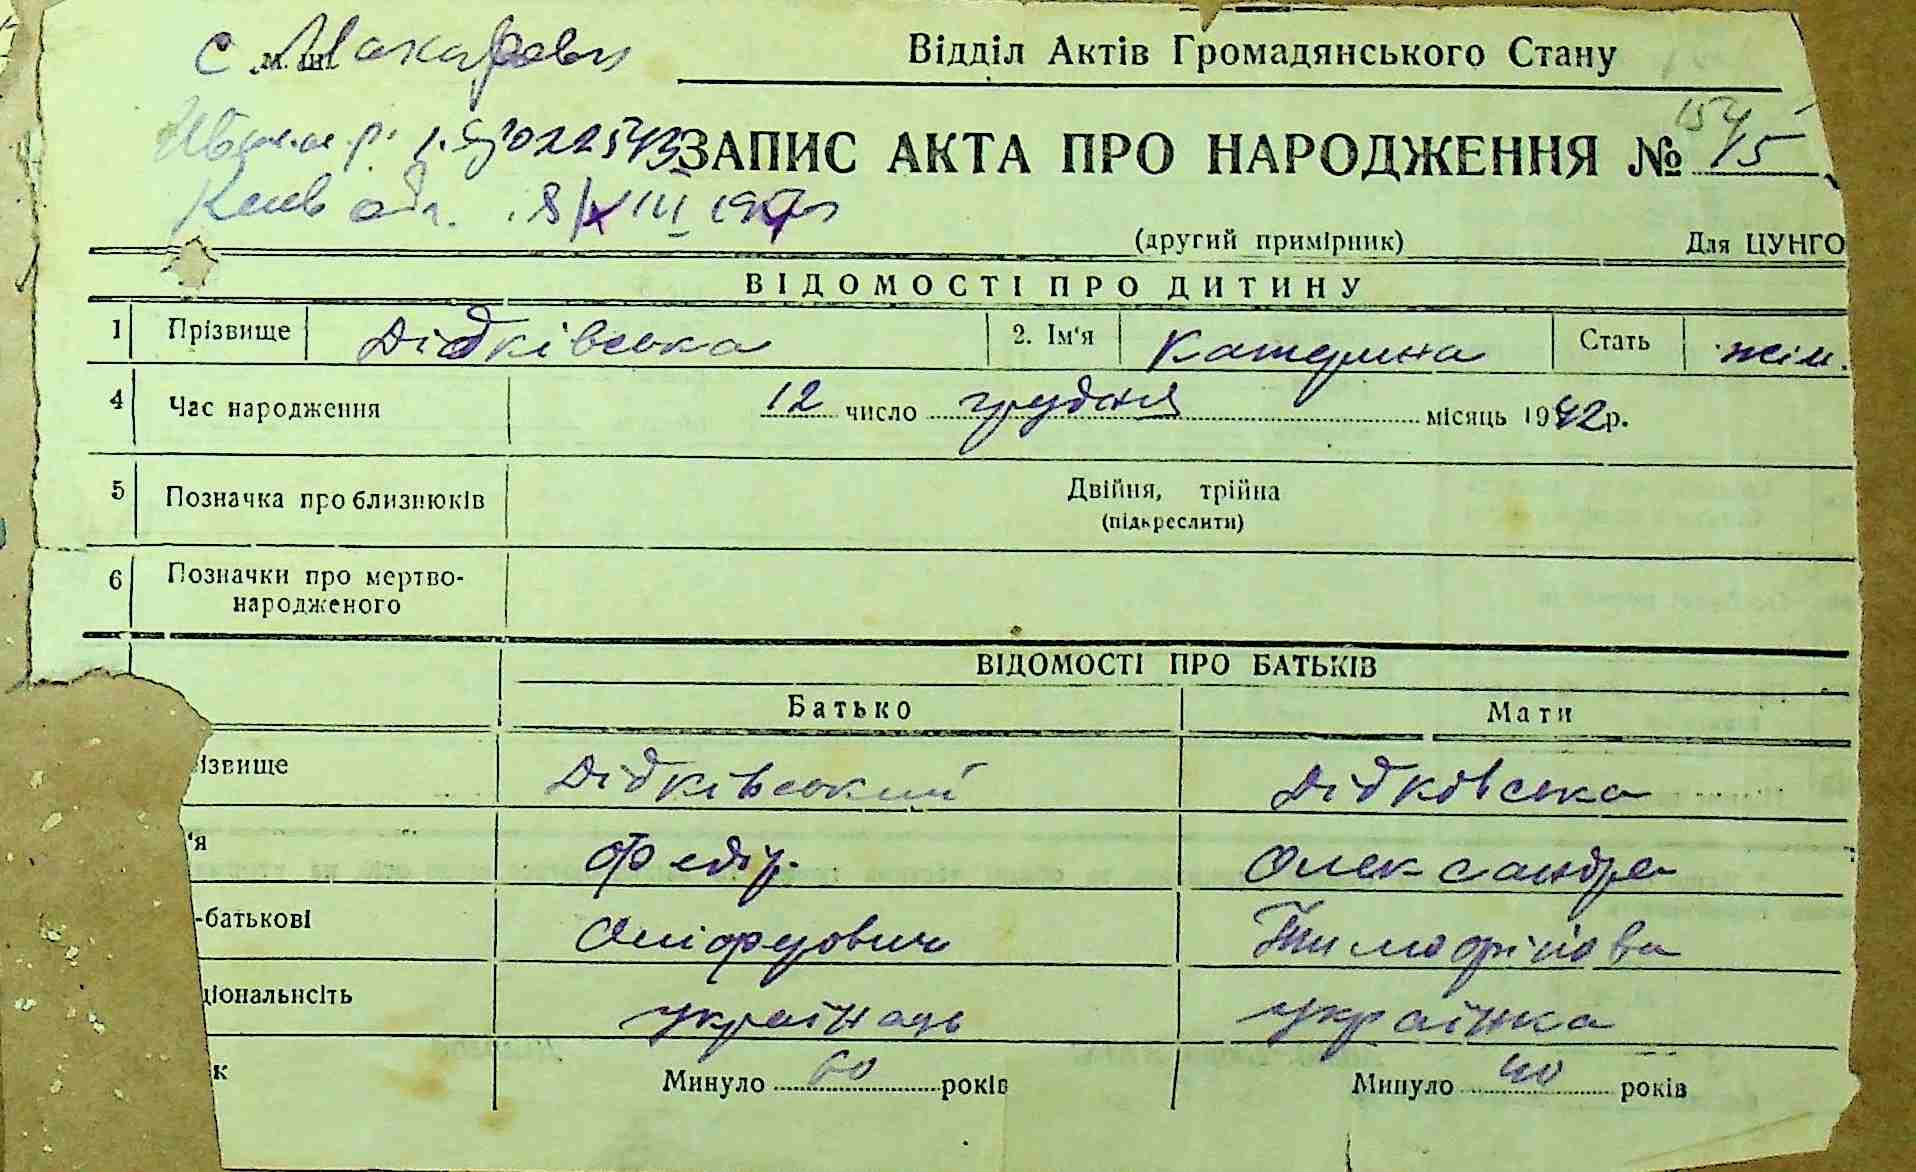 Відділ Актів Громадянського Стану
ЗАПИС АКТА ПРО НАРОДЖЕННЯ № 15
(другий примірник) Для ЦУНГО
ВІДОМОСТІ ПРО ДИТИНУ
1 Прізвище Дідківська 2. Ім'я Катерина Стать жін.
4 Час народження 12 число грудня місяць 1942 р.
5 Позначка про близнюків Двійня, трійня
(підкреслити)
6 Позначки про мертво-
народженого
ВІДОМОСТІ ПРО БАТЬКІВ
Батько Мати
ізвище Дідківський Дідковська
'я Федір Олександра
-батькові Тимофіївна
ціональнсіть українець українка
к Минуло 60 років Минуло 40 років